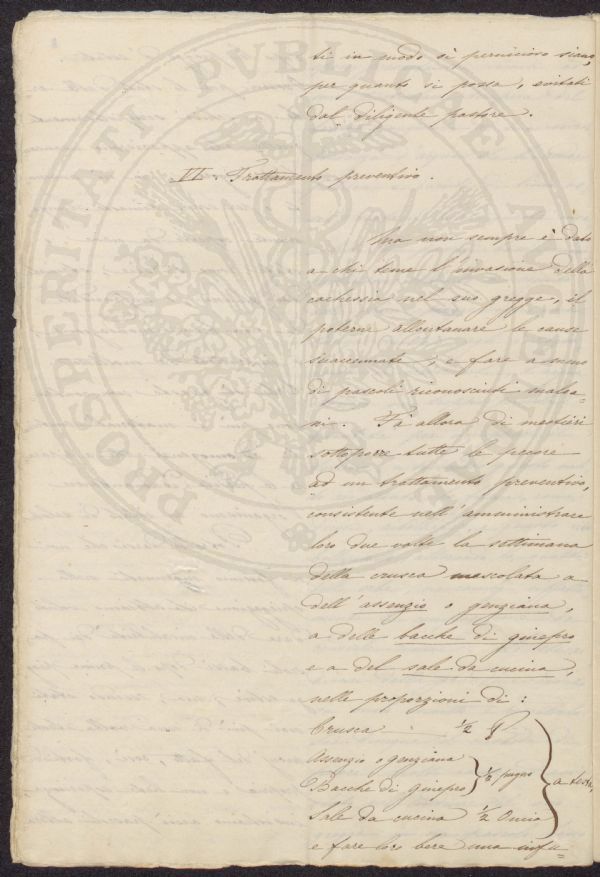 ti in modo sì pernicioso siano,
per quanto si possa, evitati
dal diligente pastore.
VI. Trattamento preventivo.
Ma non sempre è dato
a chi teme l'invasione della
cachessia nel suo gregge, il
poterne allontanare le cause
suaccennate, e fare a meno
di pascoli riconosciuti malsa=
ni. Fà allora di mestieri
sottoporre tutte le pecore
ad un trattamento preventivo,
consistente nell'amministrare
loro due volte la settimana
della crusca mescolata a
dell'assenzio o genziana,
a delle bacche di ginepro
e a del sale da cucina,
nelle proporzioni di:
Crusca ½
Assenzio o genziana
Bacche di ginepro ⅛ pugno a testa,
Sale da cucina ½ Oncia
e fare loro bere una infu=
PROSPERITATI PVBLICAE AVGENDAE